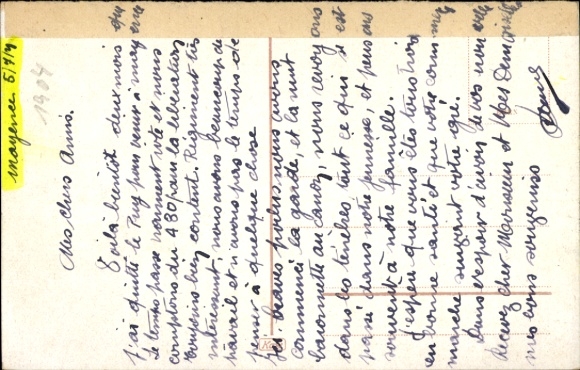 Mayence 5/7/7
1904
Mes chers Amis.
Voilà bientôt deux mois que
j'ai quitté le Puy pour venir à Mayence
le temps passe vraiment vite et nous
comptons du 430 dans la libération
toujours bien content. Régiment très
intéressant, nous avons beaucoup de
travail et n'avons pas le temps de
penser à quelque chose
Les beaux jours, nous avons
commencé la garde, et la nuit
baïonnette au canon, nous revoyons
dans les ténèbres tout ce qui s'est
passé dans notre jeunesse, et pensons
souvent à notre famille.
J'espère que vous êtes toujours
en bonne santé et que votre commerce
marche suivant votre gré.
Dans l'espoir d'avoir de vos nouvelles
Recevez cher Monsieur et Mesdemoiselles
mes bons souvenirs